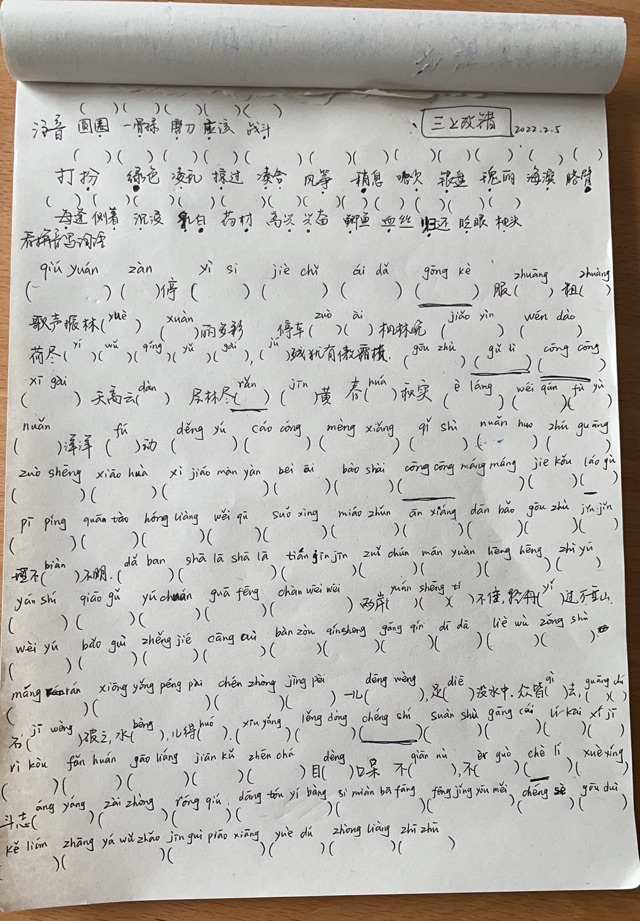 (  )(  )(  )(  )(  )
注音 圆圈 一骨碌 磨刀 应该 战斗 三上改错 2022.2.5
(  )(  )(  )(  )(  )(  )(  )(  )(  )(  )(  )(  )
打扮 绿色 凌乱 掠过 凑合 风筝 稍息 哈欠 银盘 瑰丽 海滨 胳臂
(  )(  )(  )(  )(  )(  )(  )(  )(  )(  )(  )(  )
每逢 侧着 沉浸 乳白 药材 高兴 兴奋 鲫鱼 血丝 归还 眨眼 枕头
看拼音写词语
qiú yuán zàn yì si jiè chǐ ái dǎ gōng kè zhuāng zhuàng
(  )(  )停(  )(  )(  )(  )服(  )粗(  )
歌声振林(yuè)(xuàn)丽多彩 停车(zuò ài)枫林晚(jiāo yìn)(wén dào)
荷尽(yí)(wú)(qíng)(yǔ)(gài),(jú)残犹有傲霜枝.(gōu zhù)(gǔ lì)(cōng cōng)
(xī gài)天高云(dàn)层林尽(rǎn)(jīn)黄 春(huá)秋实(è láng)(wéi qún)(fù yù)
(nuǎn)洋洋(fú)动(děng yú)(cáo cóng)(mèng xiǎng)(qǐ shì)(nuǎn huo)(zhú guāng)
zuò shēng xiāo huà xì jiáo màn yàn bēi āi bào shài cōng cōng máng máng jiē kǒu láo gù
(  )(  )(  )(  )(  )(  )(  )(  )
pī píng quān tào hóng liàng wěi qū suǒ xìng miáo zhǔn ān xiáng dàn bǎo gōu zhù jīn jīn
(  )(  )(  )(  )(  )(  )(  )(  )(  )(  )
(biàn)不明.(dǎ ban)(shā lā shā lā)(tián jīn jīn)(zuǐ chún)(mán yuàn)(hēng hēng)(zhì yú)
yán shí qiāo gǔ yú chuán guā fēng chàn wēi wēi 两岸(yuán shēng tí)(  )(  )不住,轻舟(yǐ)过万重山.
(  )(  )(  )(  )(  )
wèi yú bǎo guì zhěng jié cāng cuì bàn zòu qín shēng gāng qín dī dā liè wù zōng shù
(  )(  )(  )(  )(  )(  )(  )(  )(  )(  )
xiōng yǒng péng pài chén zhòng jīng pèi 一儿(dēng wèng),足(diē)没水中.众皆(qì)去,(guāng chí)
石(jī wèng)破之,水(bèng),儿得(huó).(xiu yǎng)(lěng dòng)(chéng shí)(suàn shù)(gāng cái)(lí kāi)(xí jī)
rì kòu fǎn huán gāo liáng jiān kǔ zhēn chá 目(dèng)口呆 不(qiān nù),不(èr guò)(chě lí)(xuè xíng)
斗志(áng yáng)(zāi zhòng)(róng qiú)(dāng tóu yí bàng)(sì miàn bā fāng)(fēng jǐng yōu měi)(chéng sè)(gōu duì)
kě lián zhāng yá wǔ zhǎo jīn guì piāo xiāng yuè dú zhòng liàng zhī zhū
(  )(  )(  )(  )(  )(  )